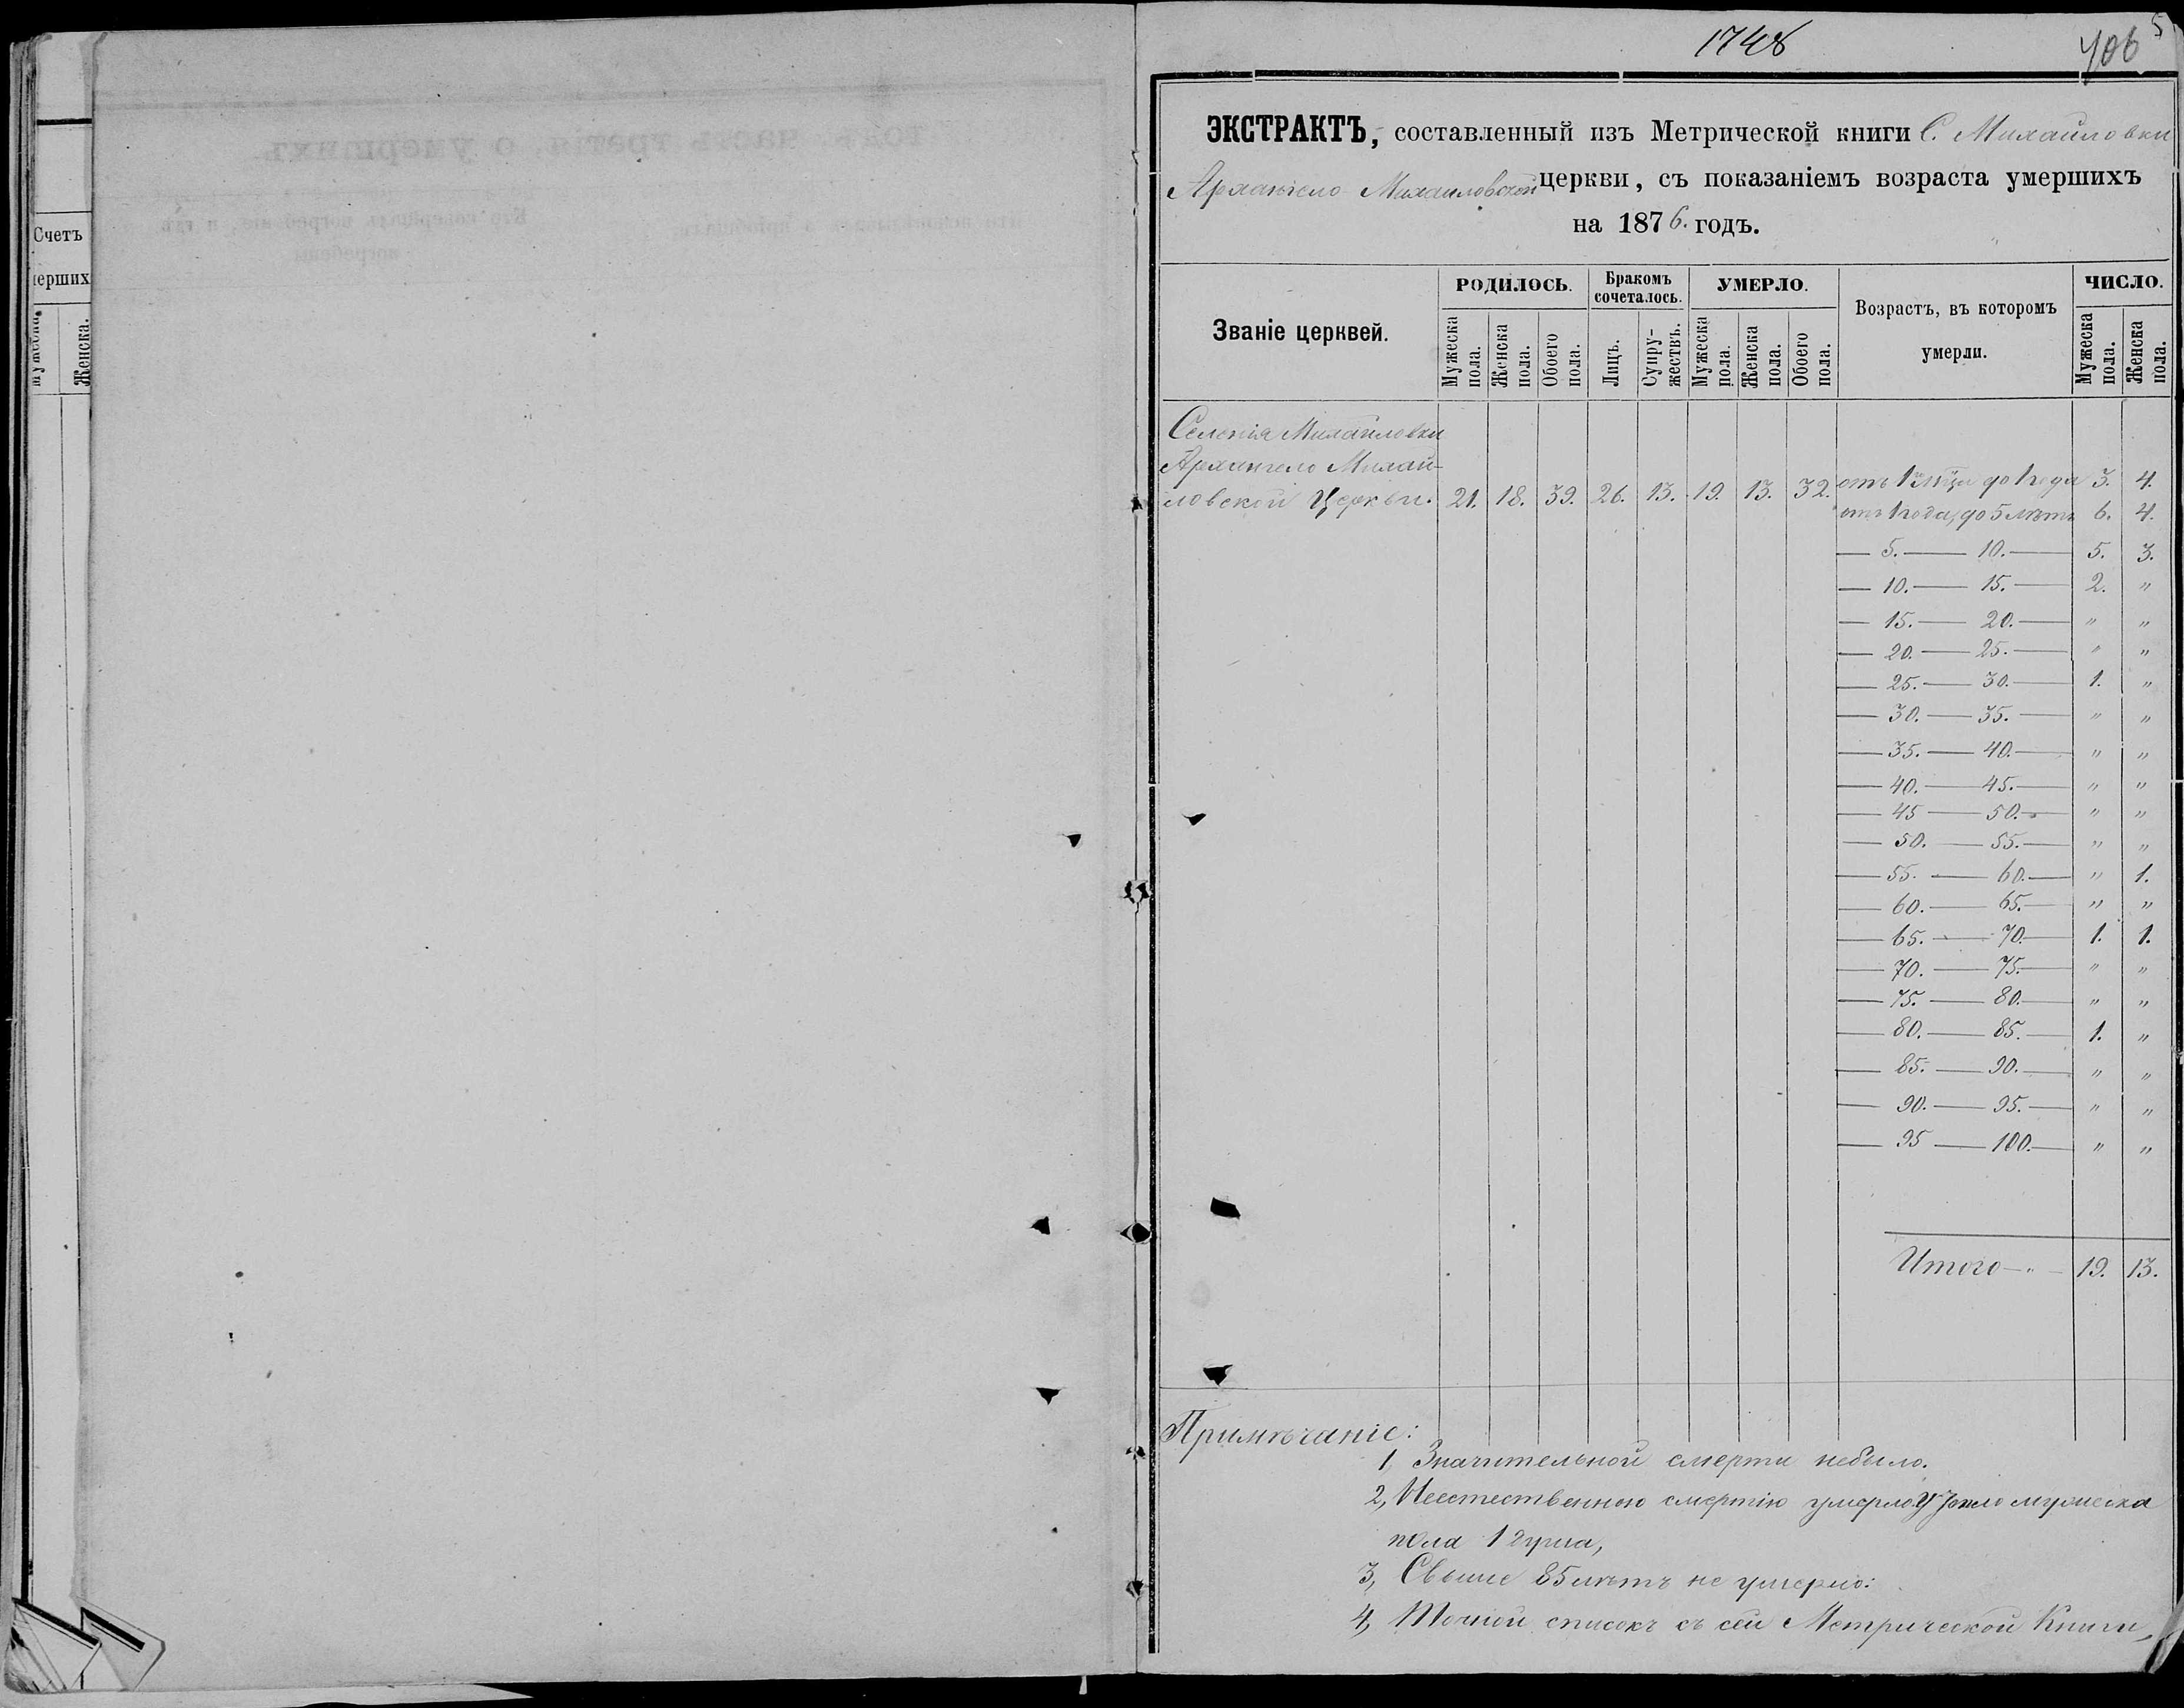 Счетъ
мерших
Женска.
1748
406
5
ЭКСТРАКТЪ, составленный изъ Метрической книги С. Михаиловки
Архангело Михаиловской церкви, съ показаніемъ возраста умершихъ
на 1876. годъ.
Званіе церквей.
РОДИЛОСЬ.
Мужеска пола.
Женска пола.
Обоего пола.
Бракомъ сочеталось.
Лицъ.
Супружествъ.
УМЕРЛО.
Мужеска пола.
Женска пола.
Обоего пола.
Возрастъ, въ которомъ
умерли.
ЧИСЛО.
Мужеска пола.
Женска пола.
Селенія Михаиловки
Архангело Михаи-
ловской Церкви. 21. 18. 39. 26. 13. 19. 13. 32. отъ до 1 года 3. 4.
отъ 1 года, до 5 лѣтъ 6. 4.
— 5. — 10. — 5. 3.
— 10. — 15. — 2. "
— 15. — 20. — " "
— 20. — 25. — " "
— 25. — 30. — 1. "
— 30. — 35. — " "
— 35. — 40. — " "
— 40. — 45. — " "
— 45 — 50. — " "
— 50. — 55. — " "
— 55. — 60. — " 1.
— 60. — 65. — " "
— 65. — 70. — 1. 1.
— 70. — 75. — " "
— 75. — 80. — " "
— 80. — 85. — 1. "
— 85. — 90. — " "
— 90. — 95. — " "
— 95 — 100. — " "
Итого — 19. 13.
Примѣчаніе:
1, Значительной смерти небыло.
2, Неестественною смертію умерло мужеска
пола 1 душа,
3, Свыше 85 лѣтъ не умерло:
4, Точной списокъ съ сей Метрической Книги,